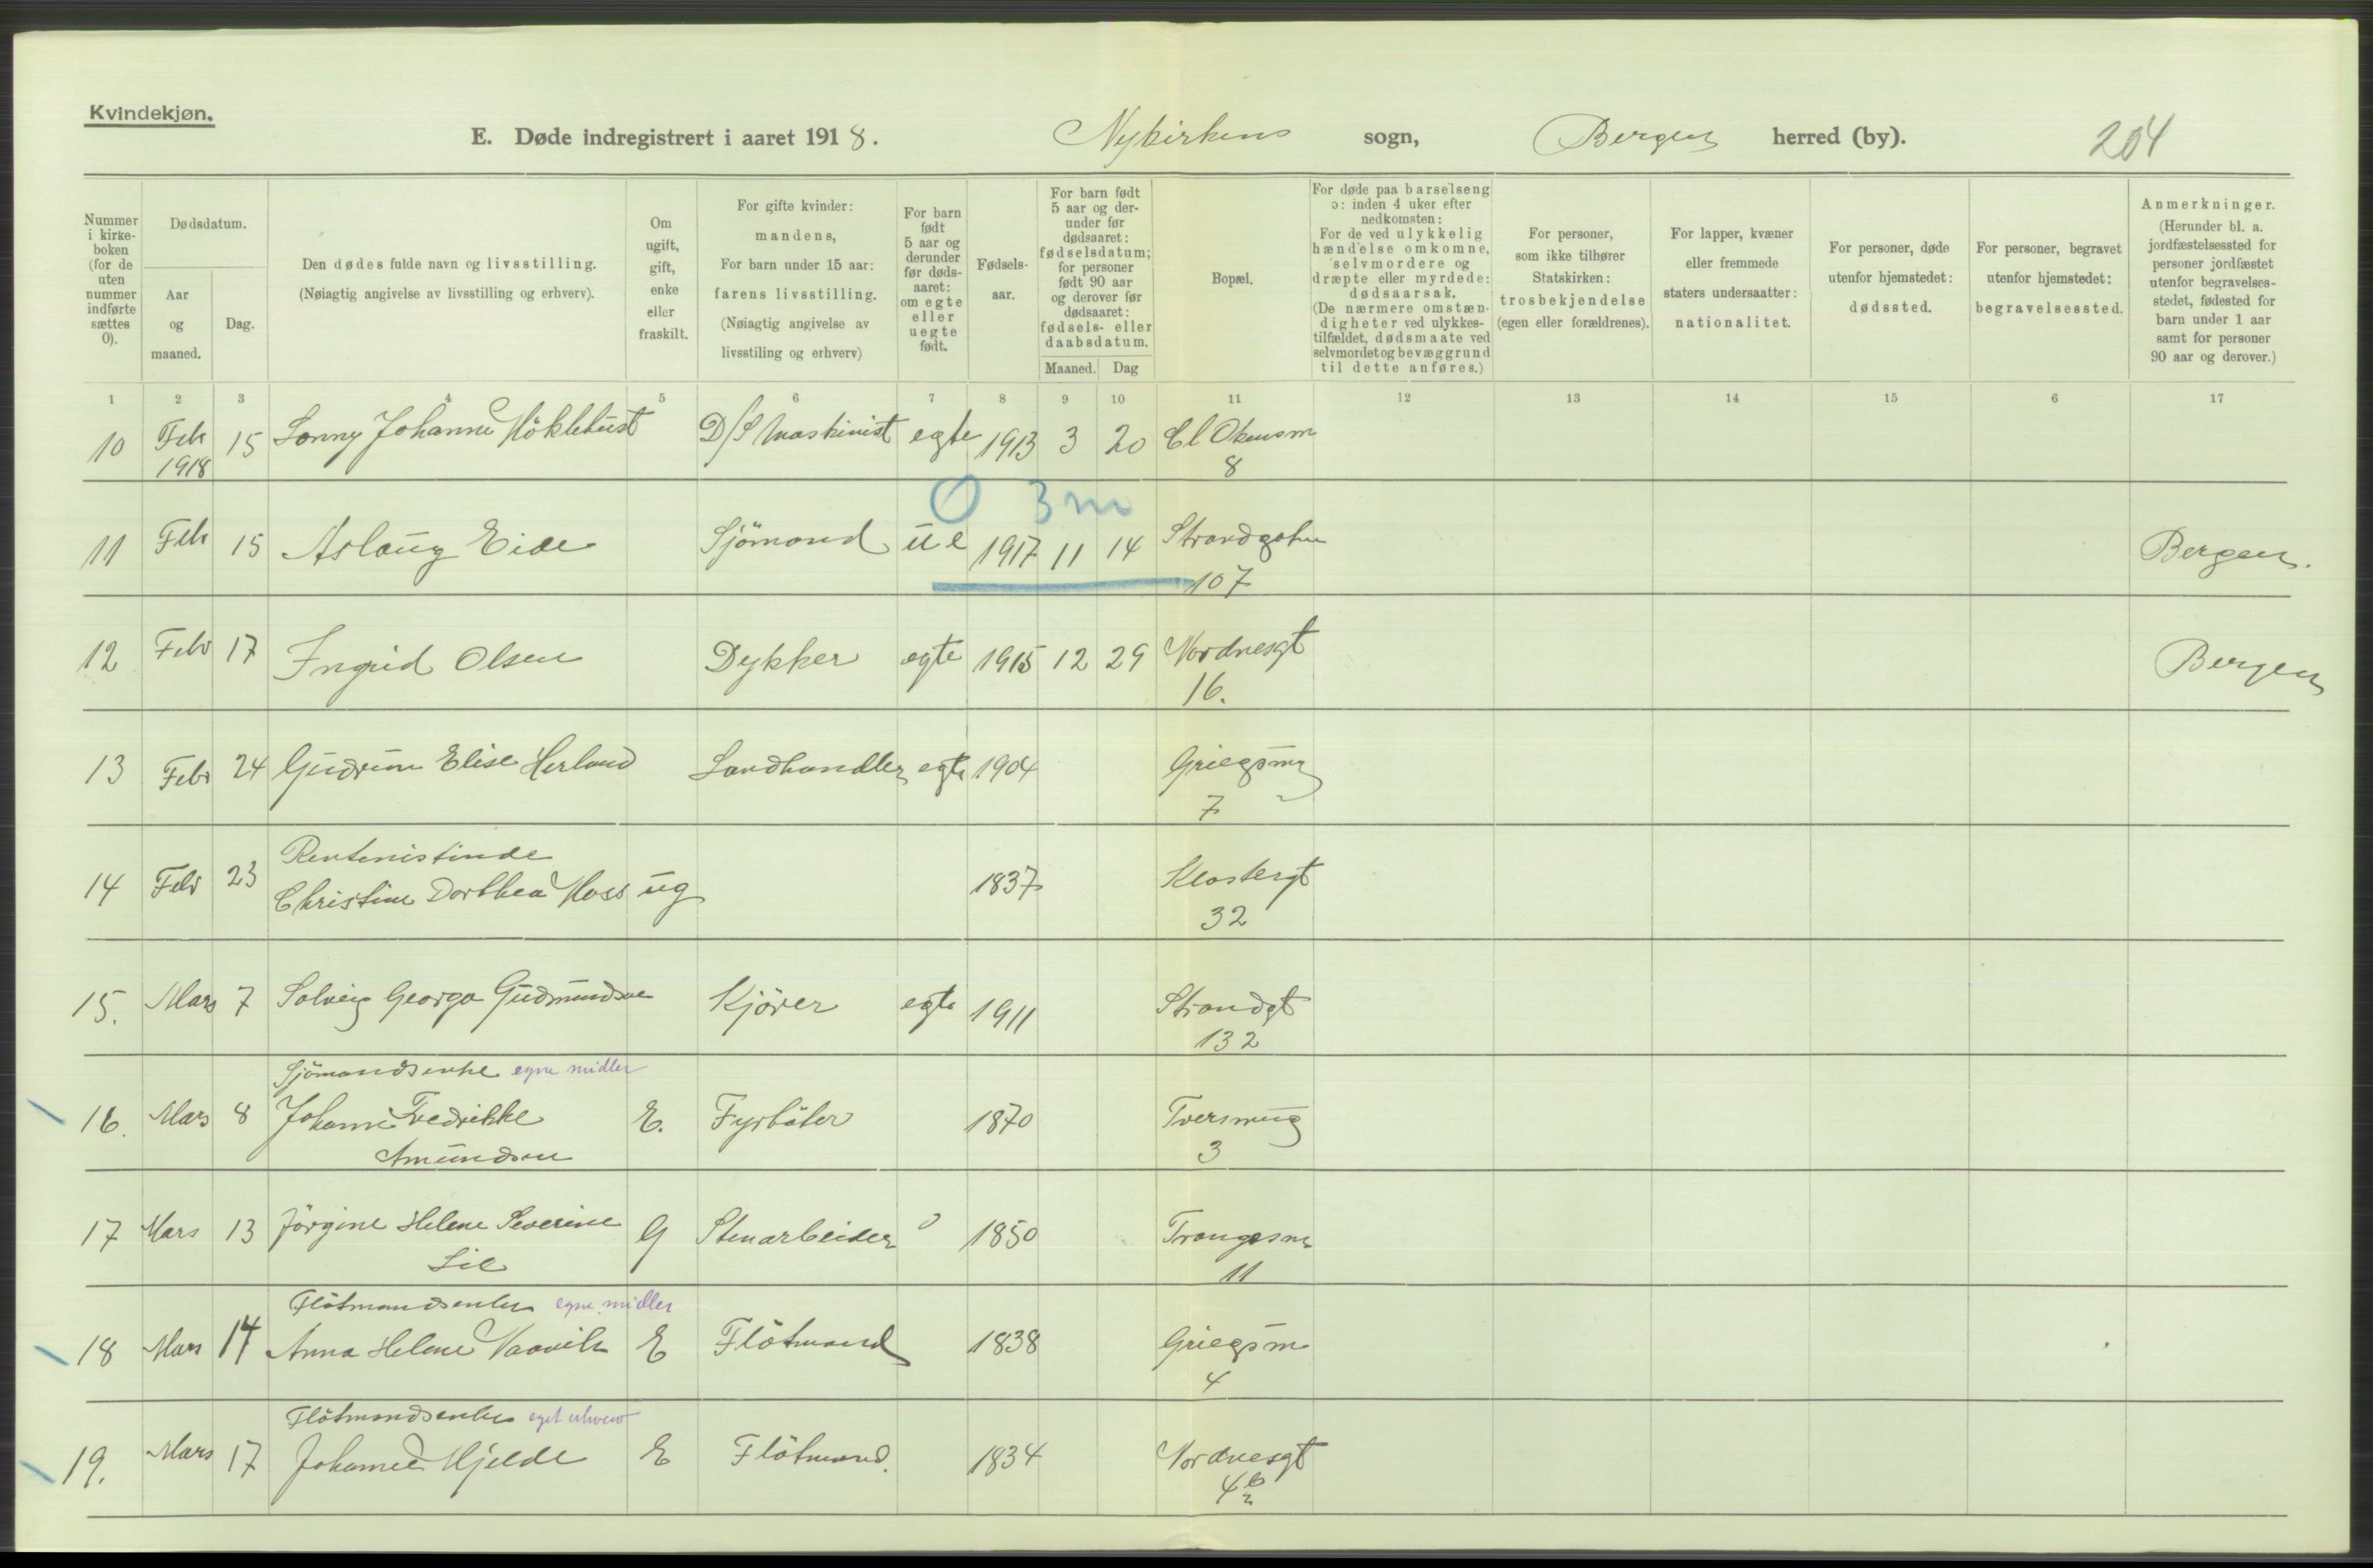 Kvindekjøn.
E. Døde indregistrert i aaret 1918. Nykirkens sogn, Bergen herred (by). 204
Nummer i kirke- boken (for de uten nummer indførte sættes 0).
Dødsdatum.
Aar og maaned.
Dag.
Den dødes fulde navn og livsstilling.
(Nøiagtig angivelse av livsstilling og erhverv).
Om ugift, gift, enke eller fraskilt.
For gifte kvinder: mandens,
For barn under 15 aar: farens livsstilling.
(Nøiagtig angivelse av livsstiling og erhverv)
For barn født 5 aar og derunder før døds- aaret: om egte eller uegte født.
Fødsels- aar.
For barn født 5 aar og der- under før dødsaaret: fødselsdatum; for personer født 90 aar og derover før dødsaaret: fødsels- eller daabsdatum.
Maaned. Dag
Bopæl.
For døde paa barselseng ɔ: inden 4 uker efter nedkomsten:
For de ved ulykkelig hændelse omkomne, selvmordere og dræpte eller myrdede: dødsaarsak.
(De nærmere omstæn- digheter ved ulykkes- tilfældet, dødsmaate ved selvmordet og bevæggrund til dette anføres.)
For personer, som ikke tilhører Statskirken: trosbekjendelse (egen eller forældrenes).
For lapper, kvæner eller fremmede staters undersaatter: nationalitet.
For personer, døde utenfor hjemstedet: dødssted.
For personer, begravet utenfor hjemstedet: begravelsessted.
Anmerkninger.
(Herunder bl. a. jordfæstelsessted for personer jordfæstet utenfor begravelses- stedet, fødested for barn under 1 aar samt for personer 90 aar og derover.)
1 2 3 4 5 6 7 8 9 10 11 12 13 14 15 6 17
10 Feb 15 Sonny Johanne D/S Maskinist egte 1913 3 20 Cl
1918 8
0 3 m
11 Feb 15 Aslaug Eide Sjömand ue 1917 11 14 Strandgaten Bergen.
107
12 Feb 17 Ingrid Olsen Dykker egte 1915 12 29 Nordnesgt Bergen
16.
13 Febr 24 Gudrun Elise Herland Landhandler egte 1904 Griegsmg
7
Rentenistinde
14 Febr 23 Christine Dorthea Moss ug 1837 Klostergt
32
15. Mars 7 Solveig Georga Gudmundsen Kjörer egte 1911 Strandgt
132
Sjömandsenke egne midler
16. Mars 8 Johanne Fredrikke E. Fyrböter 1870 Tversmug
Amundsen 3
17 Mars 13 Jörgine Helene Severine G Stenarbeider 1850 Trangesm
Lie 11
Flötmandsenke egne midler
18 Mars 14 Anna Helene Vaavik E Flötmand 1838 Griegsm
4
Flötmandsenke eget erhverv
19. Mars 17 Johanne Hjelde E Flötmand. 1834 Nordnesgt
4b